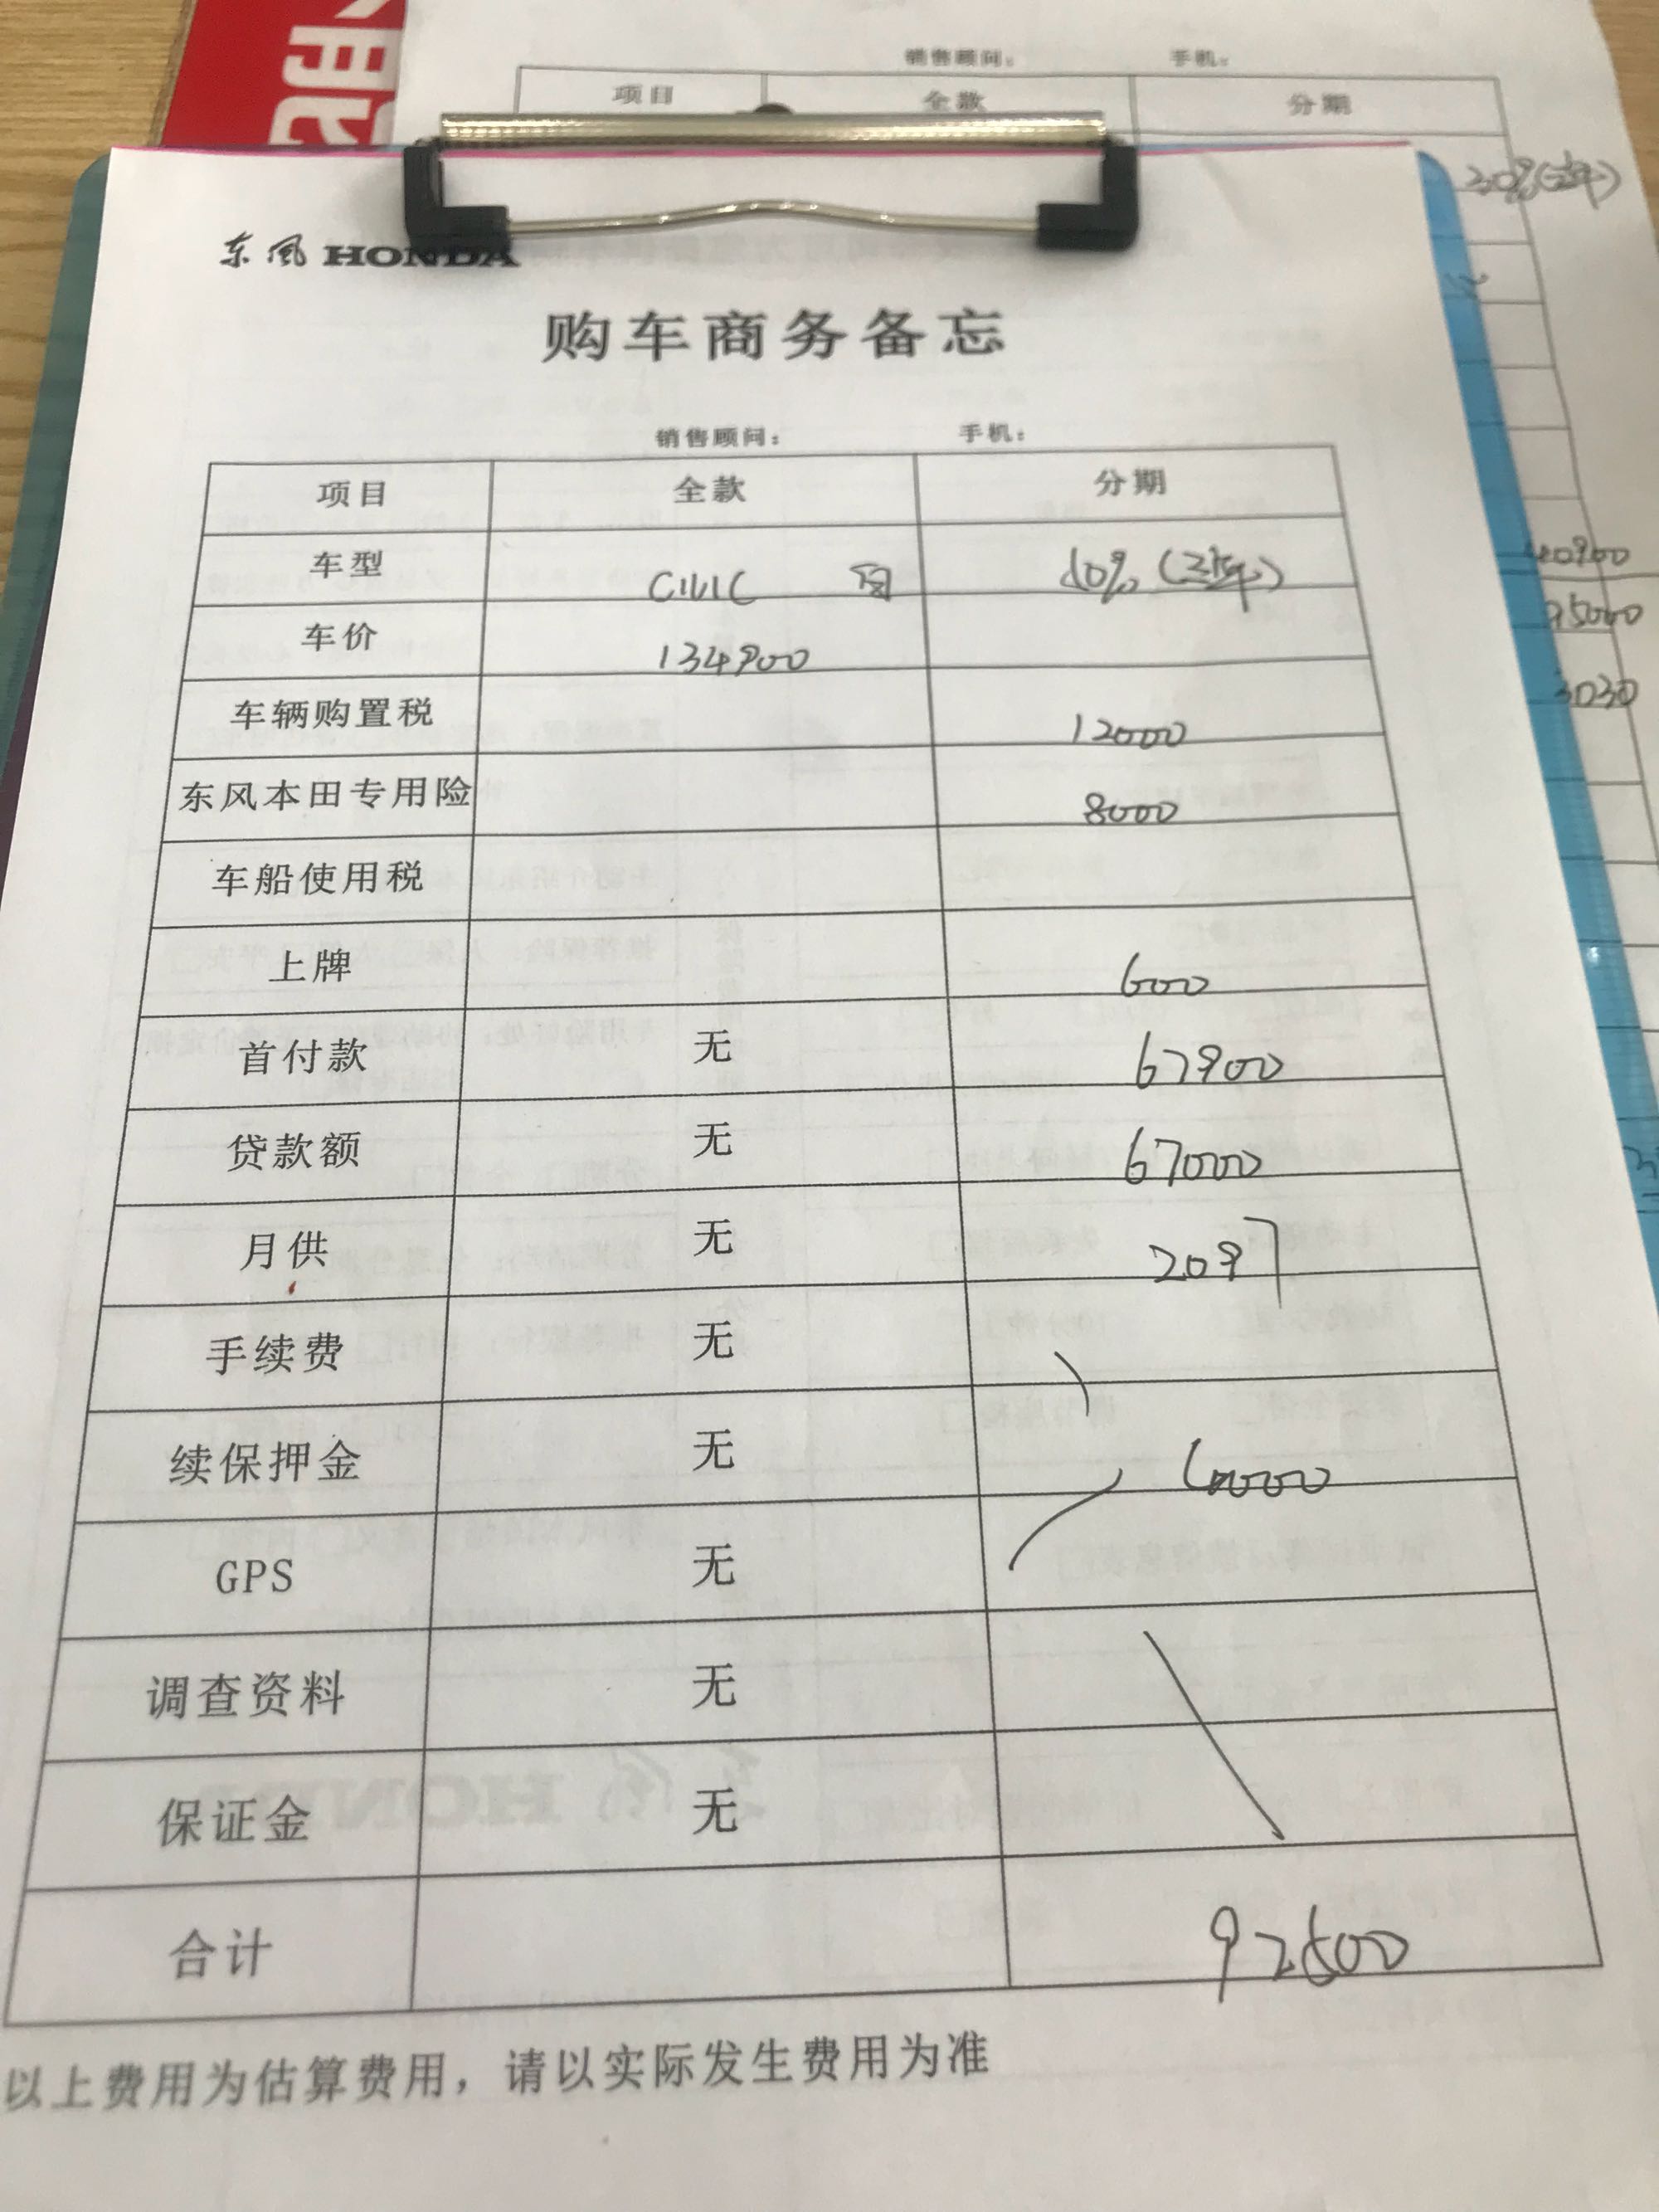 销售顾问： 手机：
项目 全款 分期
30%(三年)
东风HONDA
购车商务备忘
销售顾问： 手机：
项目 全款 分期
车型 CIVIC (三年)
车价 134900
车辆购置税 12000
东风本田专用险 8000
车船使用税
上牌 600
首付款 无 67900
贷款额 无 67000
月供 无 2097
手续费 无
续保押金 无
GPS 无
调查资料 无
保证金 无
合计 92500
以上费用为估算费用，请以实际发生费用为准
3030